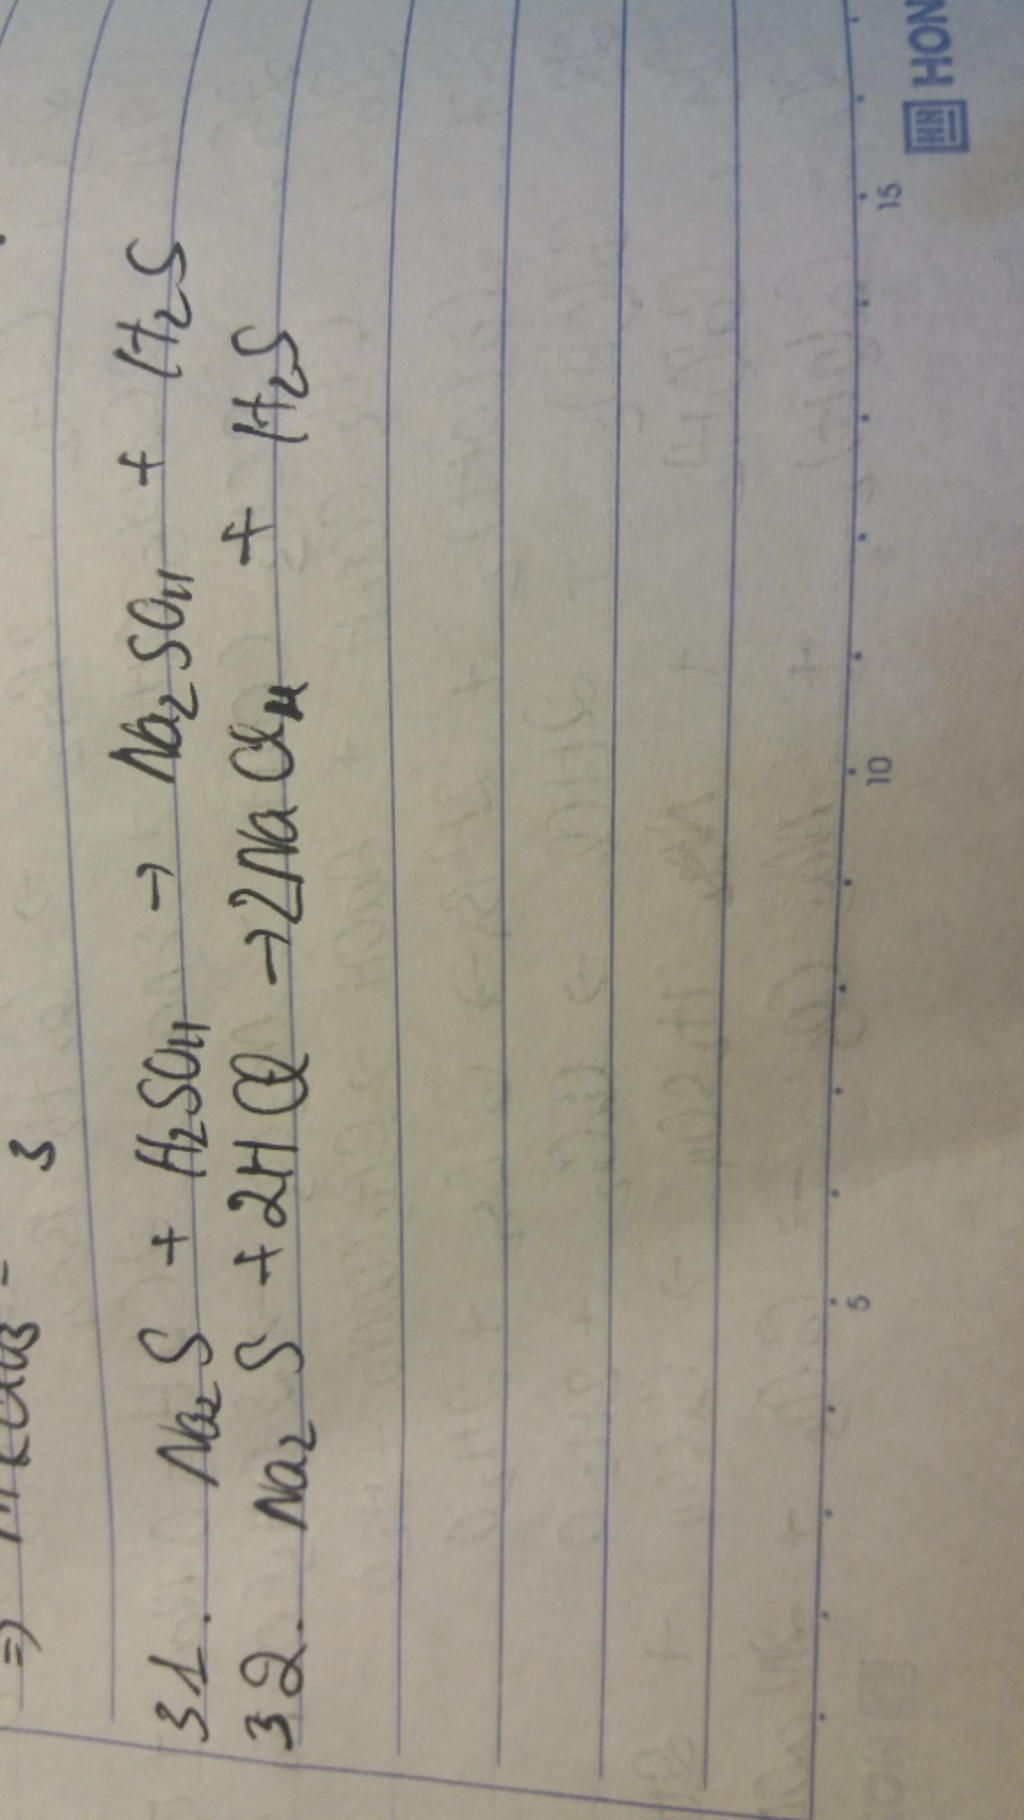 3
31. Na2S + H2SO4 → Na2SO4 + H2S
32. Na2S + 2HCl → 2NaCl + H2S
5 10 15
HON